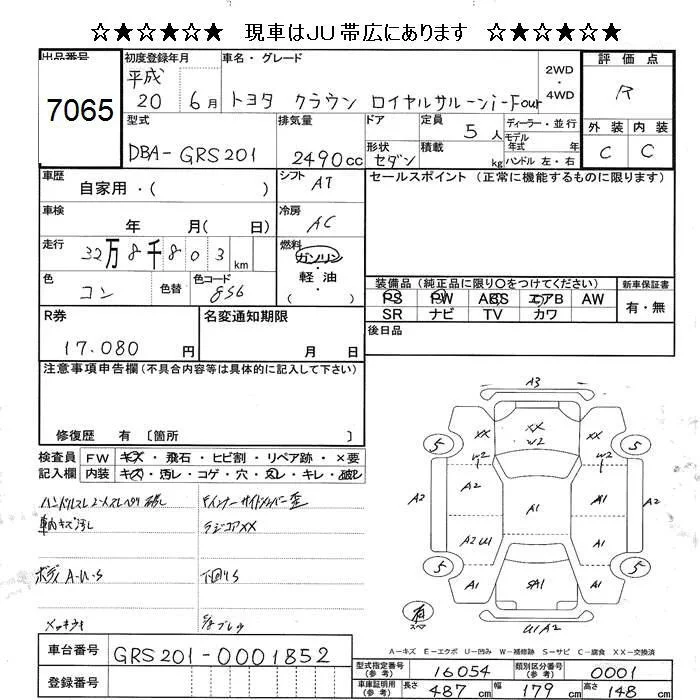 ☆★☆★☆★ 現車はJU帯広にあります ☆★☆★☆★
出品番号
7065
初度登録年月
平成
20 6月
車名・グレード
トヨタ クラウン ロイヤルサルーンi-Four
2WD
・
4WD
評価点
R
外装 内装
C C
型式
DBA-GRS201
排気量
2490cc
ドア
形状
セダン
定員
5人
積載
kg
ディーラー・並行
モデル
年式 年
ハンドル 左・右
車歴
自家用・( )
シフト
AT
セールスポイント (正常に機能するものに限ります)
車検
年 月( 日)
冷房
AC
走行
32万8千803km
燃料
ガソリン
・
軽油
( )
色
コン
色替
色コード
8S6
装備品(純正品に限り○をつけてください)
新車保証書
PS PW ABS エアB AW
有・無
SR ナビ TV カワ
R券
17.080円
名変通知期限
月 日
後日品
注意事項申告欄(不具合内容等は具体的に記入して下さい)
修復歴 有 〔箇所 〕
検査員
記入欄
FW キズ・飛石・ヒビ割・リペア跡・×要
内装 キズ・汚レ・コゲ・穴・スレ・キレ・破レ
ハンドルスレ
車内キズ汚レ
ラジコアXX
ボディA-U-S
下回りS
A3
XX
XX
W2
XX
W2
W2
5
5
A2
A2
A2
A1
A1
A2
A2U1
A1
5
5
A1
SA1
A1
有
スペア
U1A2
A-キズ E-エクボ U-凹み W-補修跡 S-サビ C-腐食 XX-交換済
車台番号
GRS201-0001852
登録番号
型式指定番号
(参考)
16054
類別区分番号
(参考)
0001
車庫証明用
(参考)
長さ 487cm 幅 179cm 高さ 148cm